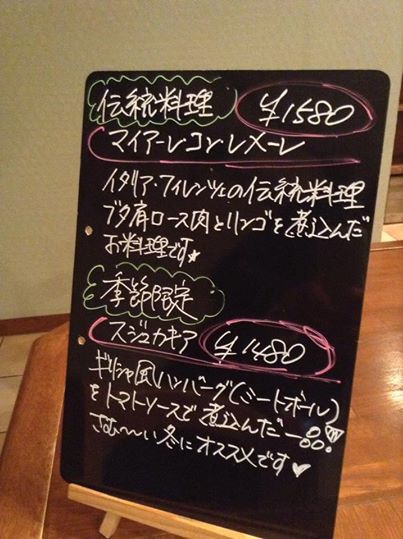 伝統料理 ¥1580
マイアーレコンレメーレ
イタリア・フィレンツェの伝統料理
ブタ肩ロース肉とリンゴを煮込んだ
お料理です★
季節限定
スジュカキア ¥1480
ギリシャ風ハンバーグ(ミートボール)
をトマトソースで煮込んだー
さむ〜〜い冬にオススメです♥